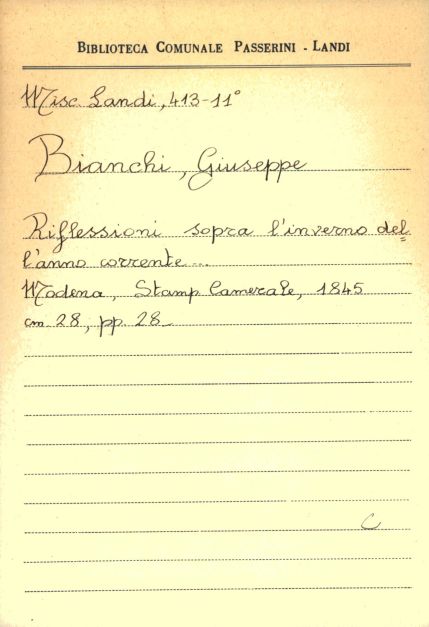 BIBLIOTECA COMUNALE PASSERINI - LANDI
Misc. Landi, 413-11°
Bianchi, Giuseppe
Riflessioni sopra l'inverno del=
l'anno corrente...
Modena, Stamp. Camerale, 1845
cm 28, pp. 28
C